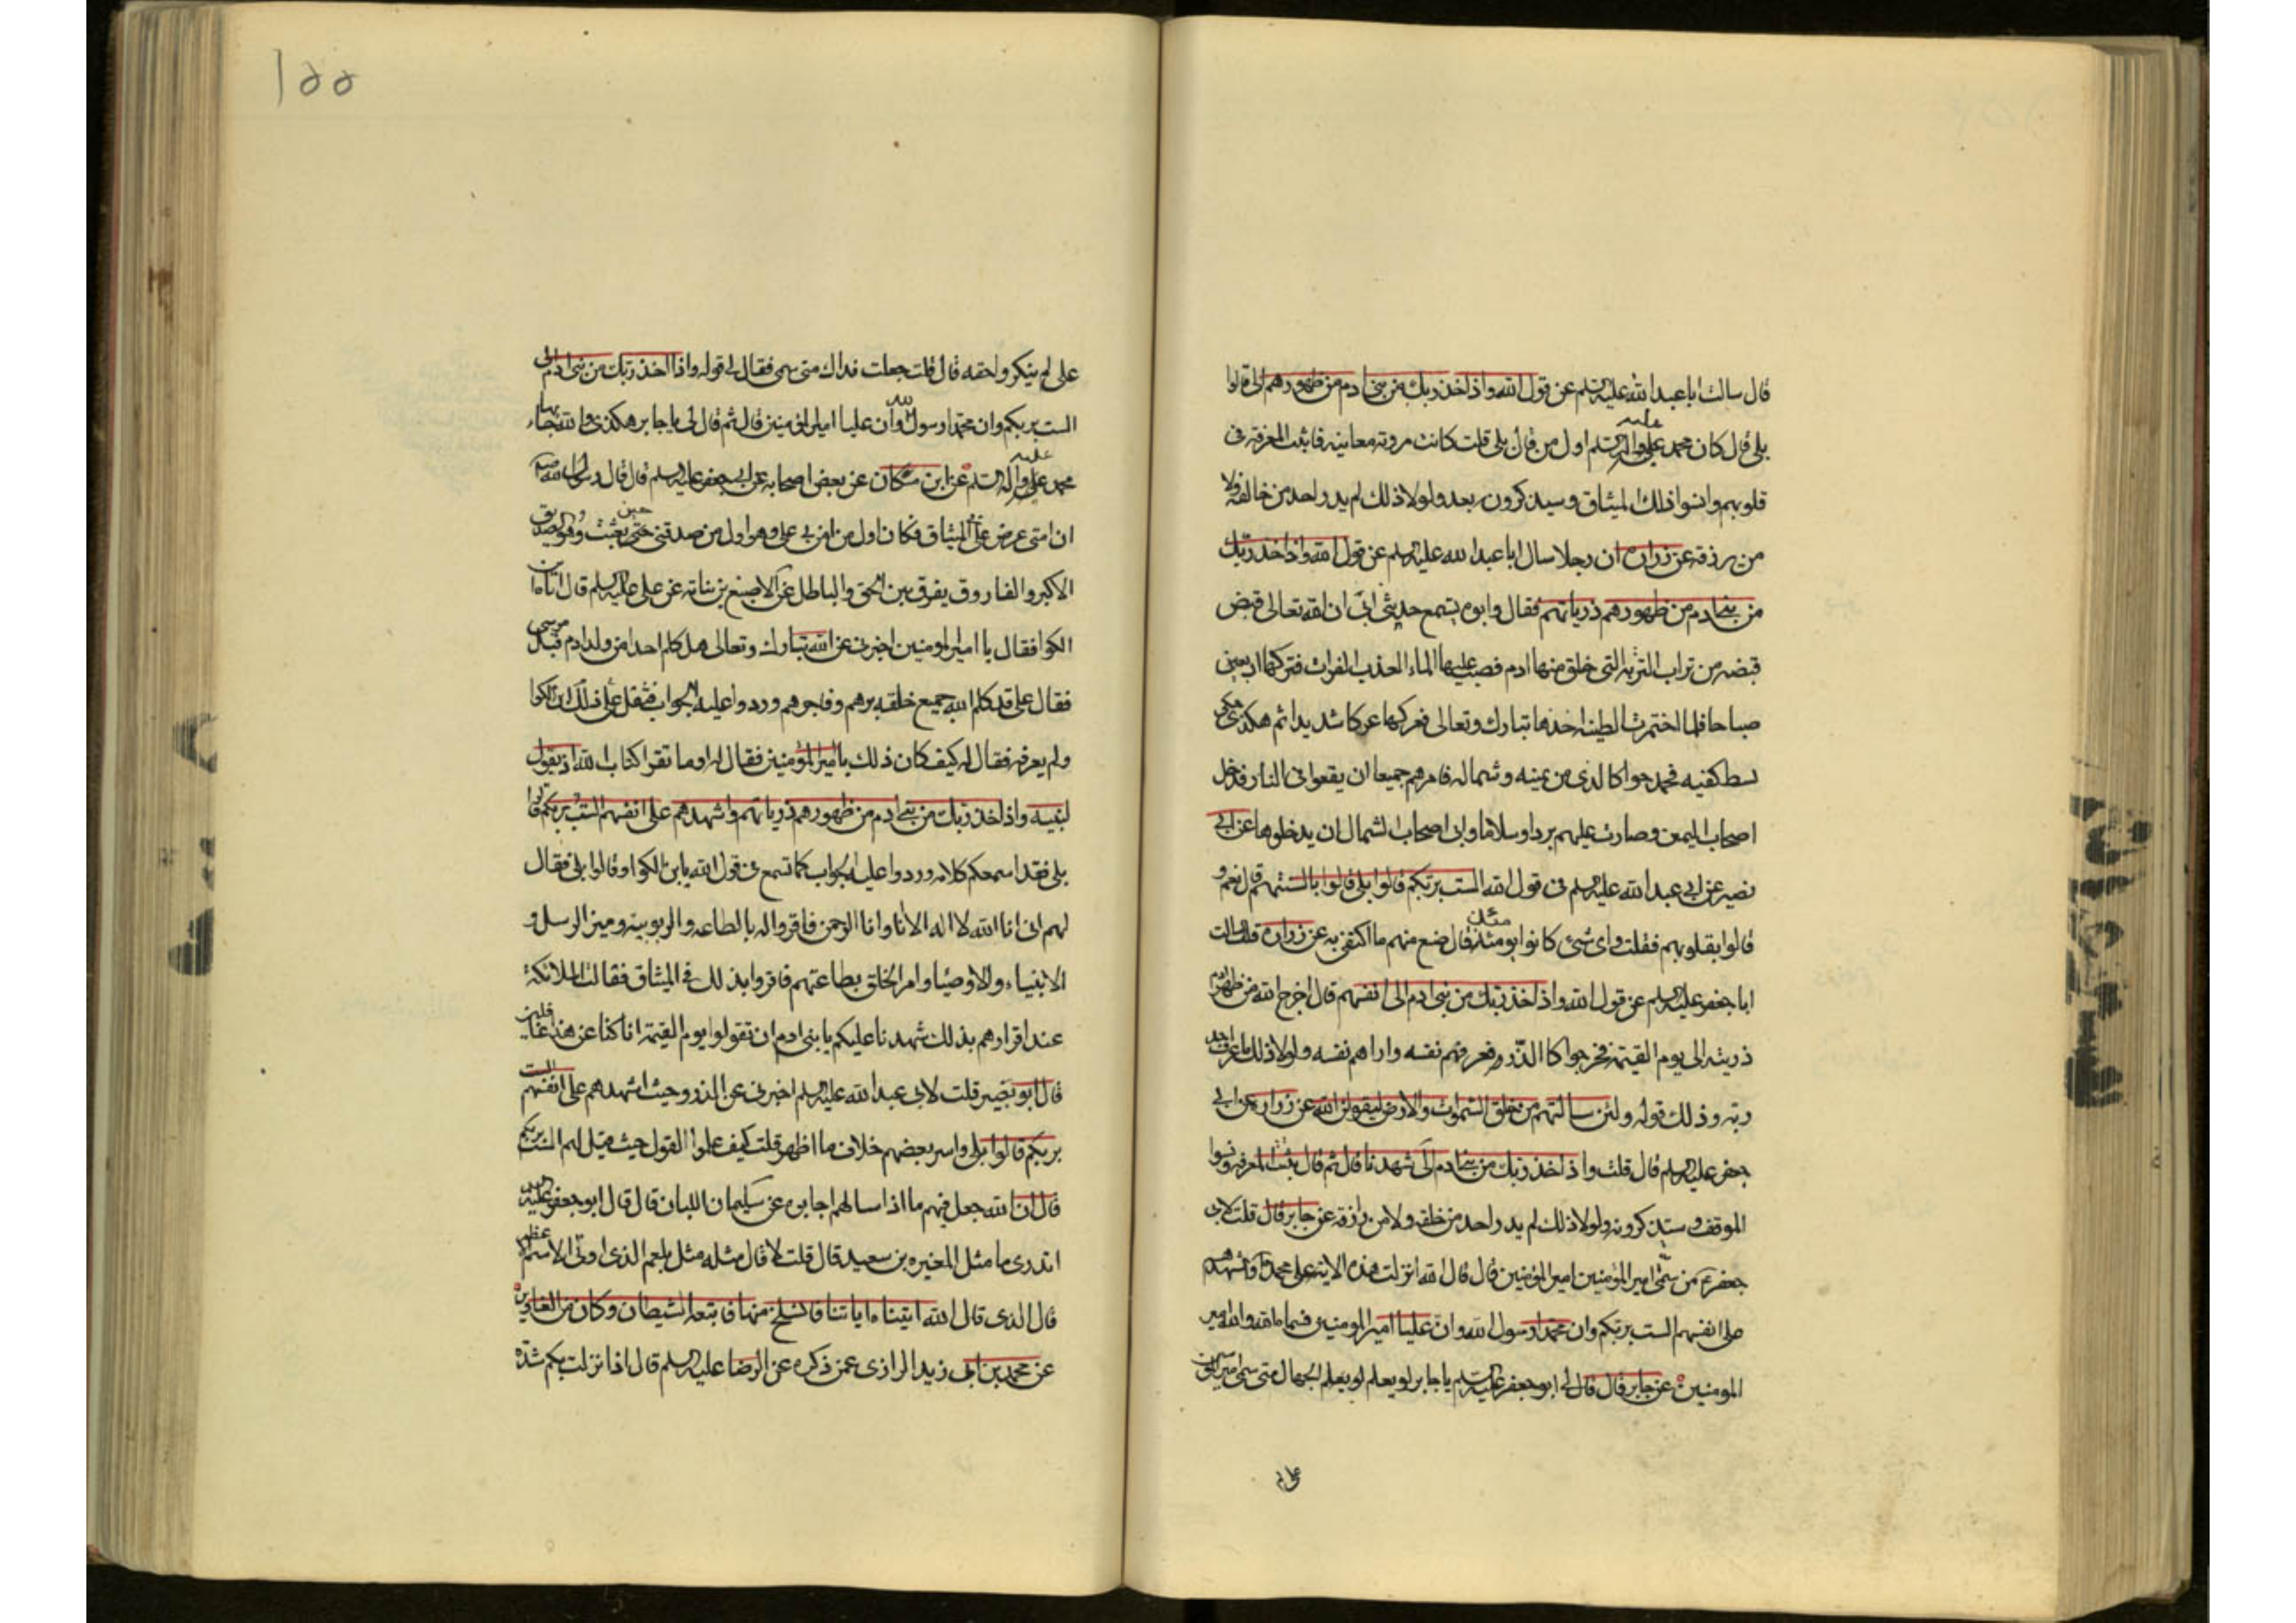 قال سالت ابا عبد الله عليه السلم عن قول الله واذ اخذ ربك من بني ادم من ظهورهم الى قالوا
بلى قال كان محمد عليه واله السلم اول من قال بلى قلت كانت مروته معاينه فاثبت المعرفه في
قلوبهم وانسوا ذلك الميثاق وسيذكرون بعد ولولا ذلك لم يدر احد من خالقه ولا
من يرزقه عن زراره ان رجلا سال ابا عبد الله عليه السلم عن قول الله واذ اخذ ربك
من بني ادم من ظهورهم ذرياتهم فقال وابوه يسمع حدثني ابي ان الله تعالى قبض
قبضه من تراب التربه التي خلق منها ادم فصب عليها الماء العذب الفرات فتركها اربعين
صباحا فلما اختمرت الطينه اخذها تبارك وتعالى فعركها عركا شديدا ثم هكذي حكى
بسط كفيه فخرجوا كالذر من يمينه وشماله فامرهم جميعا ان يقعوا في النار فدخل
اصحاب اليمين وصارت عليهم بردا وسلاما وابى اصحاب الشمال ان يدخلوها عن ابي
بصير عن ابي عبد الله عليه السلم في قول الله الست بربكم قالوا بلى قالوا بالسنتهم قال نعم و
قالوا بقلوبهم فقلت واى شئ كانوا يومئذ قال صنع منهم ما اكتفى به عن زراره قال سالت
ابا جعفر عليه السلم عن قول الله واذ اخذ ربك من بني ادم الى انفسهم قال اخرج الله من ظهر ادم
ذريته الى يوم القيمة فخرجوا كالذر فعرفهم نفسه واراهم نفسه ولولا ذلك ما عرف احد
ربه وذلك قوله ولئن سالتهم من خلق السموات والارض ليقولن الله عن زراره عن ابي
جعفر عليه السلم قال قلت واذ اخذ ربك من بني ادم الى شهدنا قال ثم قال يثبت المعرفه ونسوا
الموقف وسيذكرونه ولولا ذلك لم يدر احد من خلقه ولا من رازقه عن جابر قال قلت لابي
جعفر من سمى امير المؤمنين امير المؤمنين قال قال الله انزلت هذه الاية على محمد واشهدهم
على انفسهم الست بربكم وان محمدا رسول الله وان عليا امير المومنين فسماه الله والله امير
المومنين عن جابر قال قال لي ابو جعفر عليه السلم يا جابر لو يعلم لو يعلم الجهال متى سمى امير المؤمنين
على لم
على لم ينكروا حقه قال قلت جعلت فداك متى سمى فقال لي قوله واذ اخذ ربك من بني ادم الى
الست بربكم وان محمدا رسول الله وان عليا امير المؤمنين قال ثم قال لي يا جابر هكذي والله جاء بها
محمد عليه واله السلم عن ابن مسكان عن بعض اصحابه عن ابي جعفر عليه السلم قال قال رسول الله
ان امتي عرض علي الميثاق فكان اول من امن بي على وهو اول من صدقني حين بعثت وهو الصديق
الاكبر والفاروق يفرق بين الحق والباطل عن الاصبغ بن نباته عن على عليه السلم قال اتاه ابن
الكوا فقال يا امير المومنين اخبرني عن الله تبارك وتعالى هل كلم احدا من ولد ادم قبل موسى
فقال على قد كلم الله جميع خلقه برهم وفاجرهم وردوا عليه الجواب فثقل على ذلك ابن الكوا
ولم يعرفه فقال له كيف كان ذلك يا امير المؤمنين فقال له او ما تقرا كتاب الله اذ يقول
لنبيه واذ اخذ ربك من بني ادم من ظهورهم ذرياتهم واشهدهم على انفسهم الست بربكم قالوا
بلى فقد اسمعكم كلامه وردوا عليه الجواب كما تسمع في قول الله يا بن الكوا وقالوا بلى فقال
لهم انى انا الله لا اله الا انا وانا الرحمن فاقروا له بالطاعه والربوبيه وميز الرسل و
الانبياء والاوصيا وامر الخلق بطاعتهم فاقروا بذلك في الميثاق فقالت الملائكة
عند اقرارهم بذلك شهدنا عليكم يا بني ادم ان تقولوا يوم القيمة انا كنا عن هذا غافلين
قال ابو بصير قلت لابي عبد الله عليه السلم اخبرني عن الذر وحيث اشهدهم على انفسهم الست
بربكم قالوا بلى واسر بعضهم خلاف ما اظهر قلت كيف علموا القول حيث قيل لهم الست بربكم
قال ان الله جعل فيهم ما اذا سالهم اجابوه عن سليمان اللبان قال قال ابو جعفر عليه السلم
اتدرى ما مثل المغيره بن سعيد قال قلت لا قال مثله مثل بلعم الذى اوتى الاسم الاعظم
قال الذى قال الله اتيناه اياتنا فانسلخ منها فاتبعه الشيطان وكان من الغاوين
عن محمد بن ابي زيد الرازى عمن ذكره عن الرضا عليه السلم قال اذا نزلت بكم شدة
١٥٥